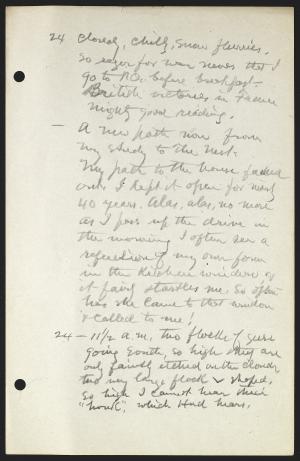 24 Cloudy, chilly, snow flurries.
So eager for war news that I
go to P.O. before breakfast.
British victories in France
mighty good reading.
— A new path now from
my study to the Nest.
My path to the house faded
out. I kept it open for nearly
40 years. Alas, alas, no more
as I pass up the drive in
the morning I often see a
reflection of my own form
in the kitchen window &
it fairly startles me. So often
has she came to that window
& called to me!
24 — 11 1/2 a.m. two flocks of geese
going South, so high they are
only faintly etched on the clouds,
two very large flock V shaped,
so high I cannot hear their
"honk", which Hud hears.